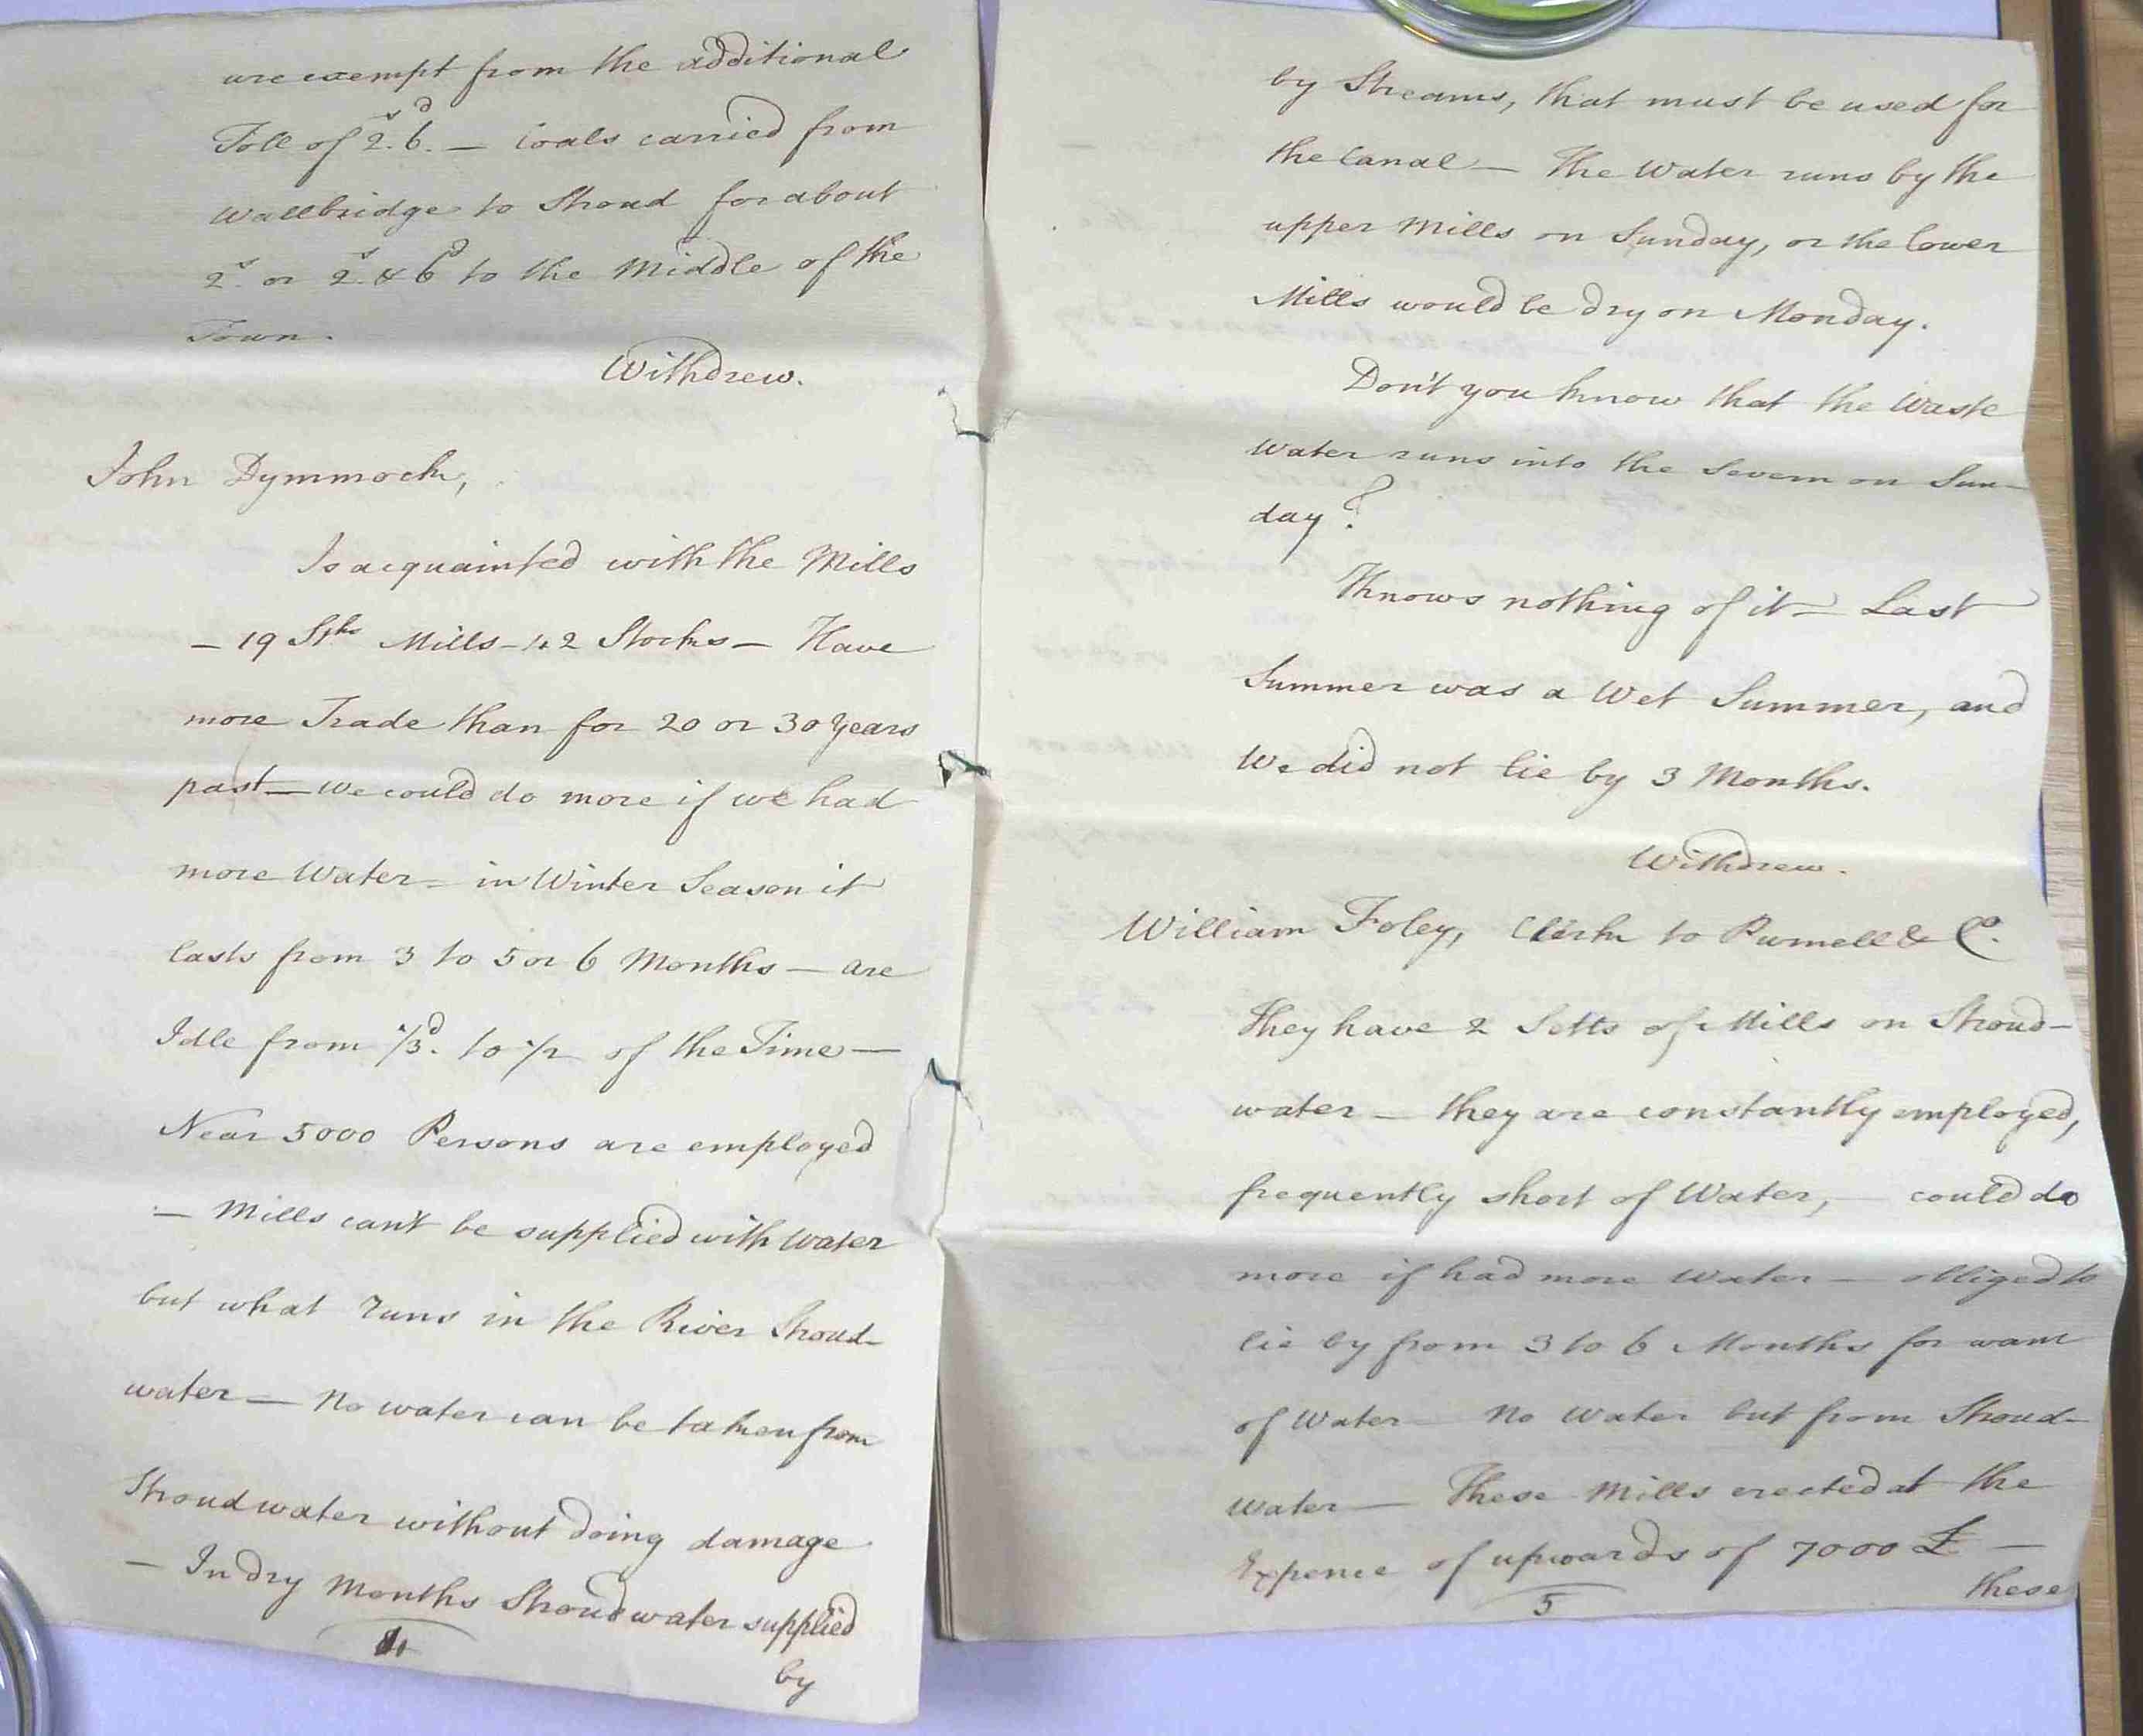 are exempt from the additional
Toll of 2.s 6.d — Coals carried from
Wallbridge to Stroud for about
2s. or 2.s & 6d to the Middle of the
Town.
Withdrew.
John Dymmock,
Is acquainted with the Mills
— 19 Mills — 42 Stocks — Have
more Trade than for 20 or 30 Years
past — We could do more if we had
more Water = in Winter Season it
lasts from 3 to 5 or 6 Months — are
Idle from 1/3d. to 1/2 of the Time —
Near 5000 Persons are employed
— Mills can't be supplied with Water
but what runs in the River Stroud-
water — No water can be taken from
Stroudwater without doing damage
— In dry Months Stroudwater supplied
by
by Streams, that must be used for
the Canal — The Water runs by the
upper Mills on Sunday, or the lower
Mills would be dry on Monday.
Don't you know that the Waste
Water runs into the Severn on Sun-
day?
Knows nothing of it — Last
Summer was a Wet Summer, and
We did not lie by 3 Months.
Withdrew.
William Foley, Clerk to Purnell & Co.
They have 2 Setts of Mills on Stroud-
water — they are constantly employed,
frequently short of Water, — could do
more if had more Water — obliged to
lie by from 3 to 6 Months for want
of Water — No Water but from Stroud-
water — These Mills erected at the
Expence of upwards of 7000 £ —
5
these